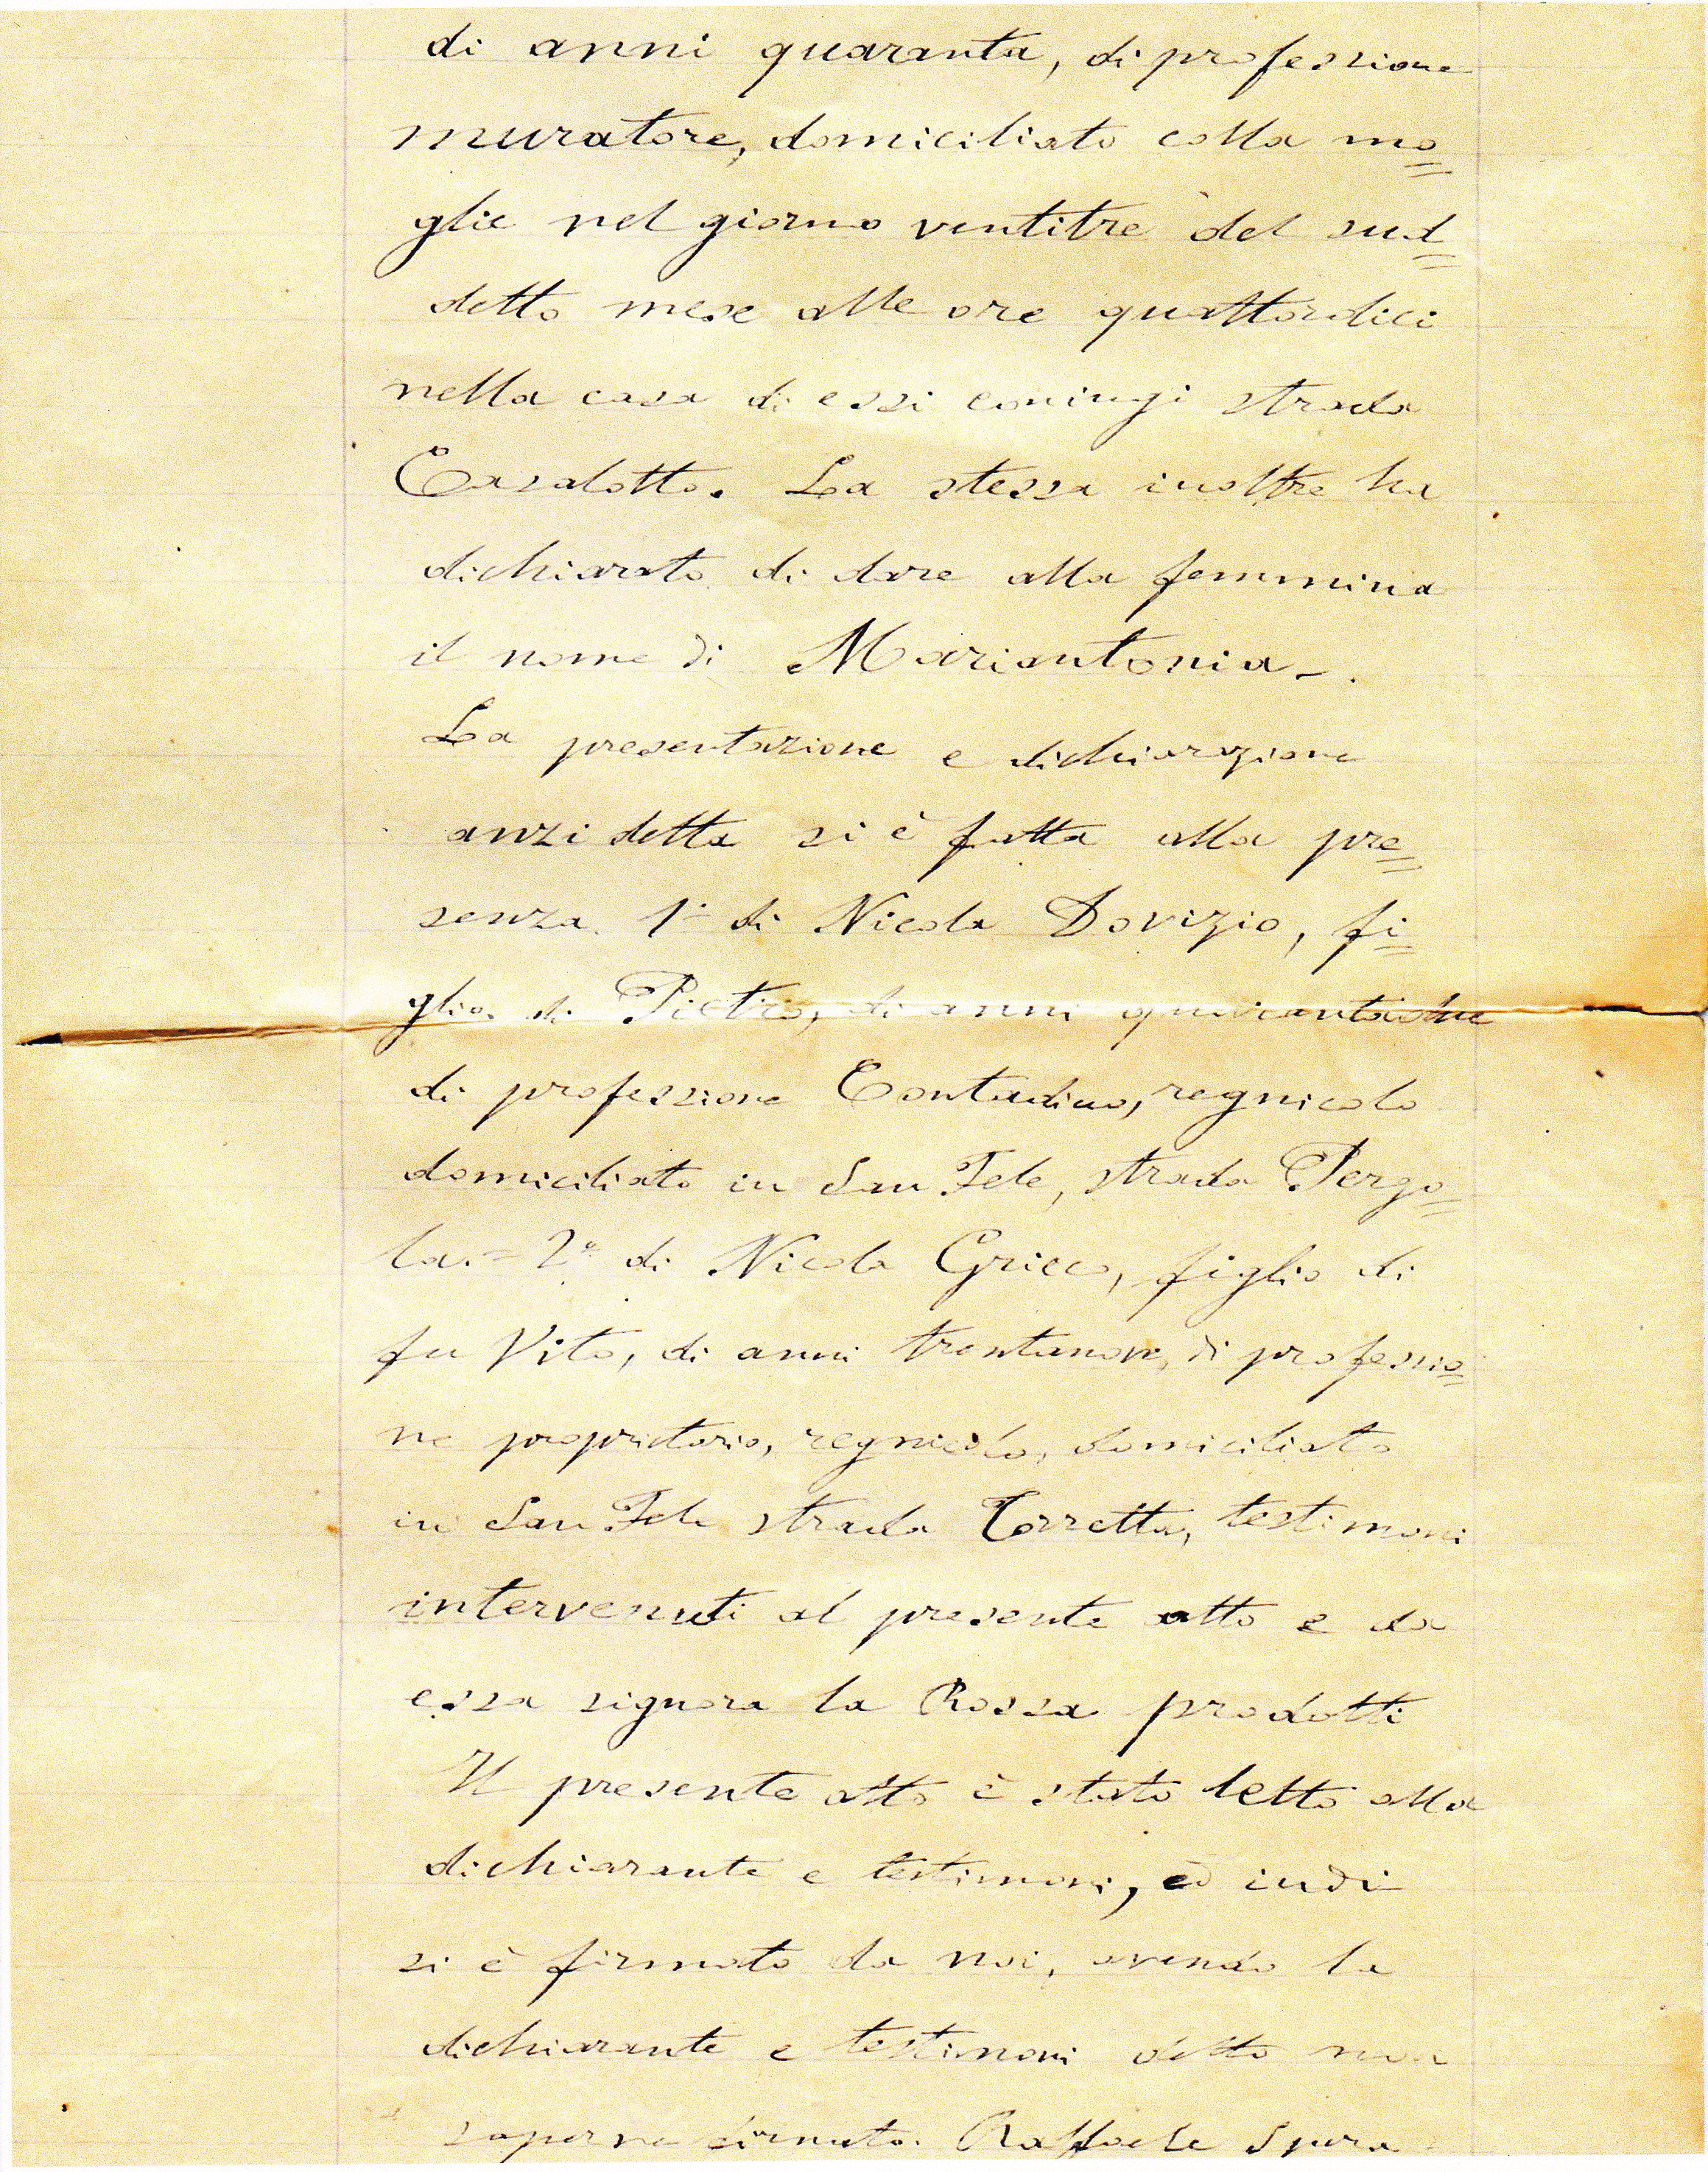 di anni quaranta, di professione
muratore, domiciliato colla mo=
glie nel giorno ventitre del sud=
detto mese alle ore quattordici
nella casa di essi coniugi strada
Casalotto. La stessa inoltre ha
dichiarato di dare alla femmina
il nome di Mariantonia_.
La presentazione e dichiarazione
anzi detta si è fatta alla pre=
senza. 1° di Nicola Dovizio, fi=
glio di Pietro, di anni quarantadue
di professione Contadino, regnicolo
domiciliato in San Fele, strada Pergo=
la. = 2° di Nicola Grieco, figlio di
fu Vito, di anni trentanove, di professio=
ne proprietario, regnicolo, domiciliato
in San Fele strada Torretta, testimoni
intervenuti al presente atto e da
essa signora la Rossa prodotti
Il presente atto è stato letto alla
dichiarante e testimoni, ed indi
si è firmato da noi, avendo la
dichiarante e testimoni detto non
saperne Raffaele Spera